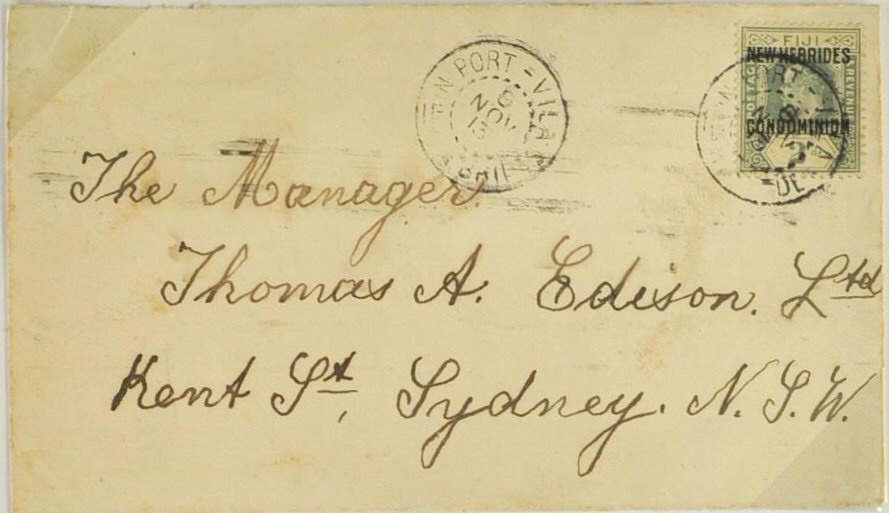 FIJI
NEW HEBRIDES
POSTAGE
REVENUE
CONDOMINIUM
PORT-VILA
NOV
The Manager
Thomas A. Edison. Ltd
Kent St, Sydney. N. S. W.